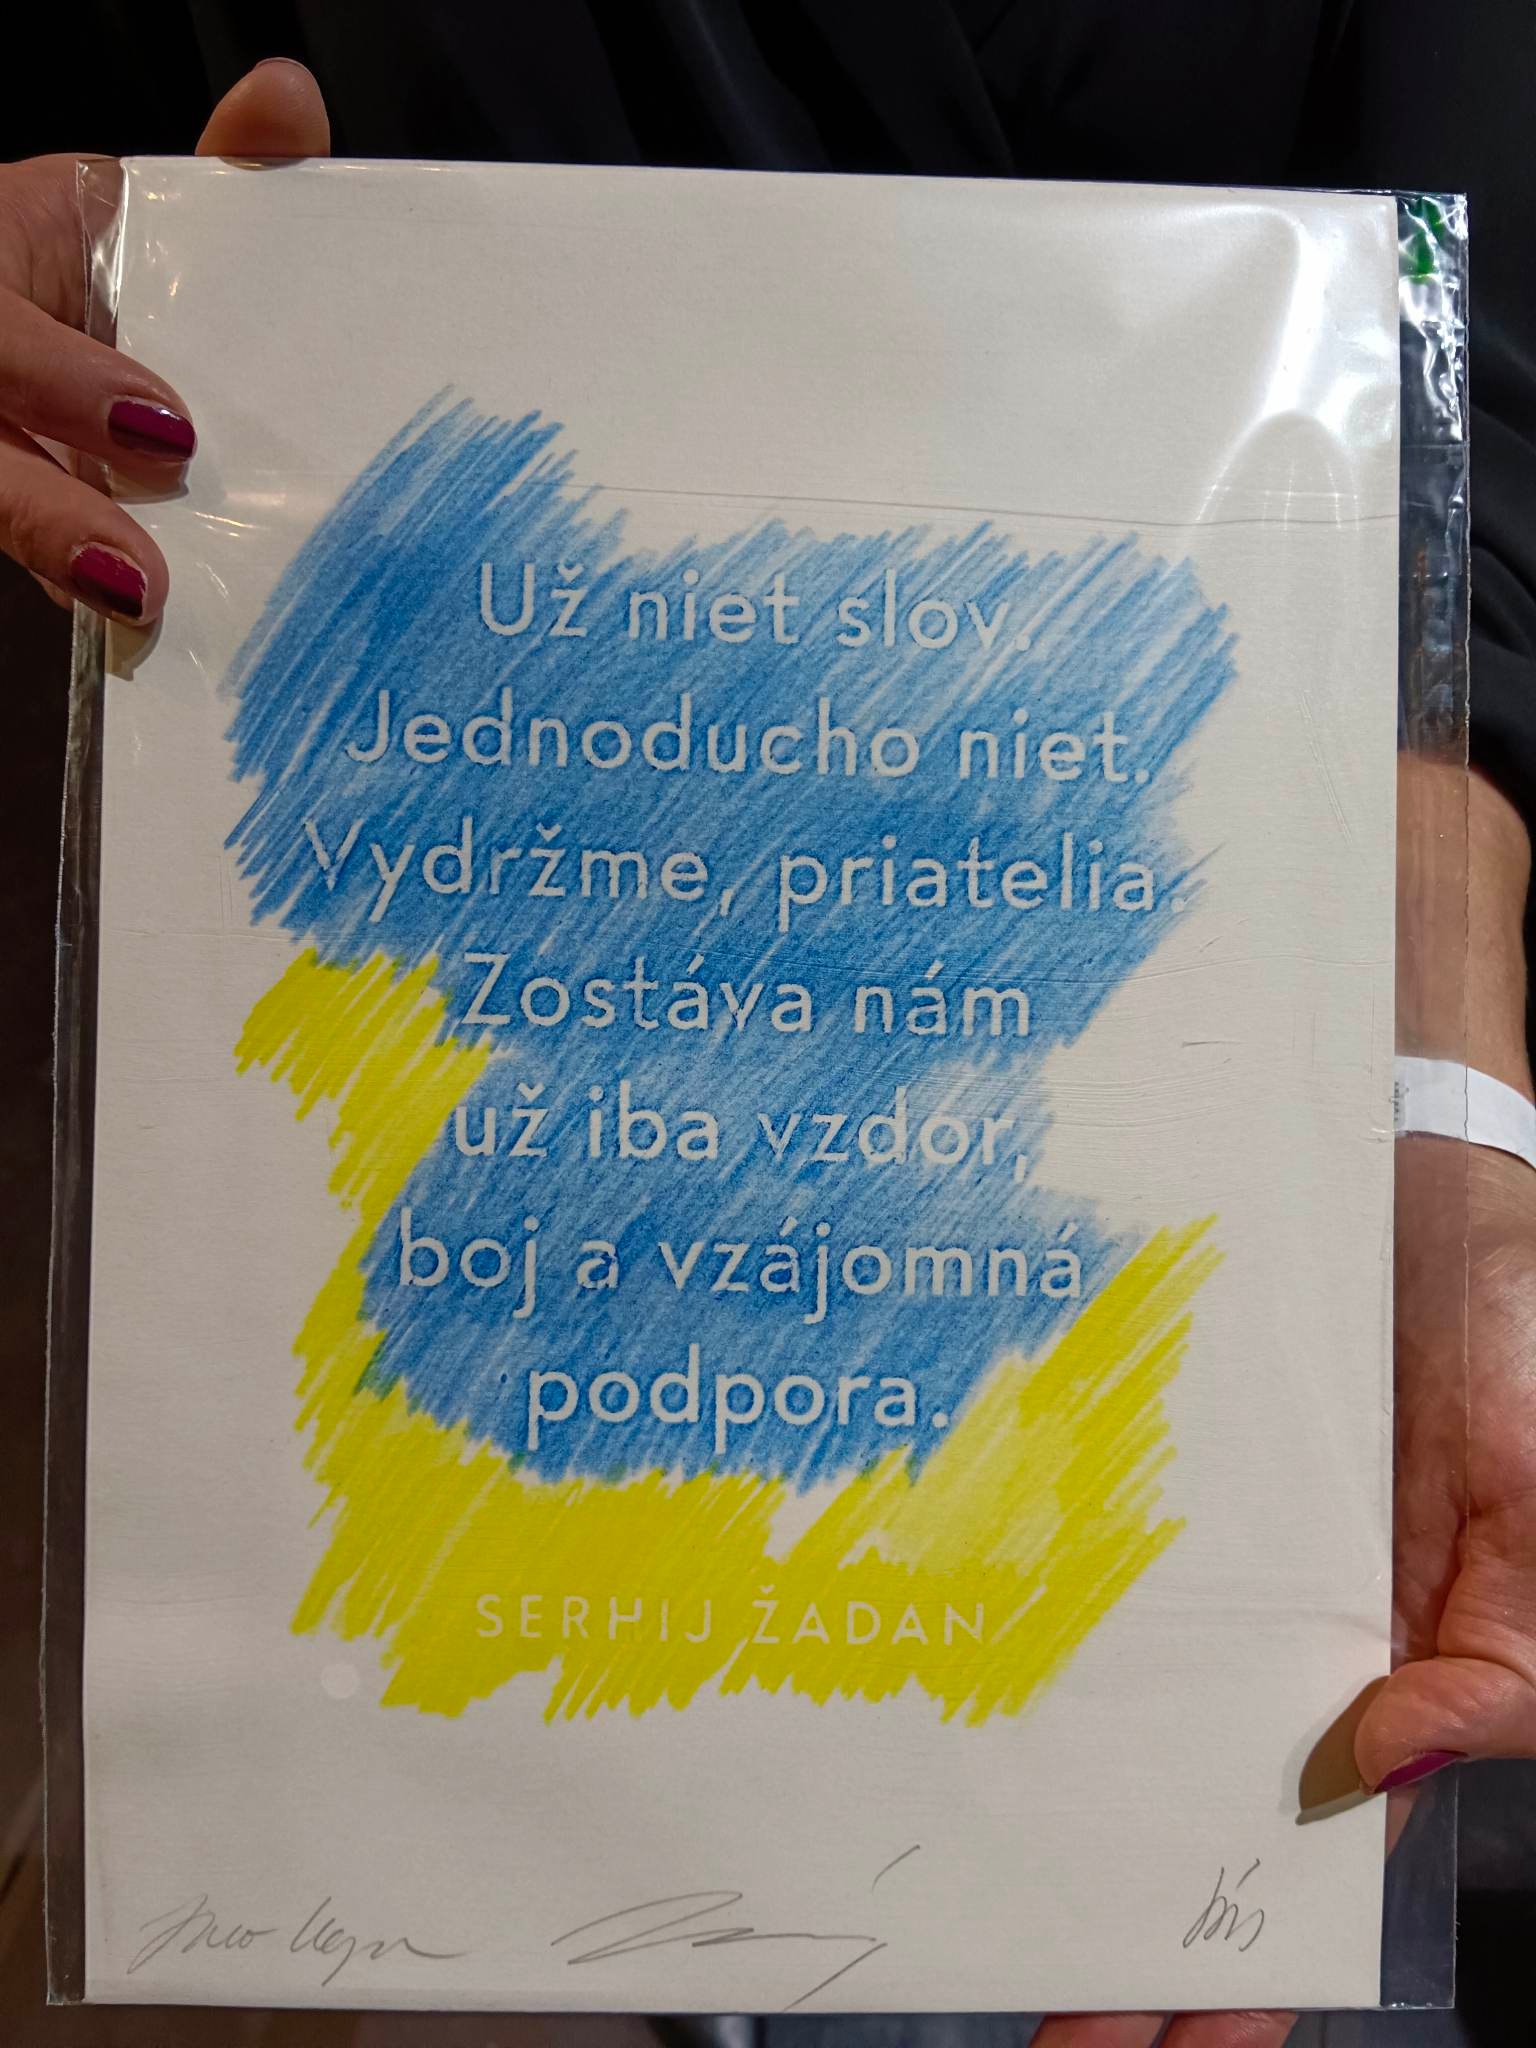 Už niet slov.
Jednoducho niet.
Vydržme, priatelia.
Zostáva nám
už iba vzdor,
boj a vzájomná
podpora.
SERHIJ ŽADAN